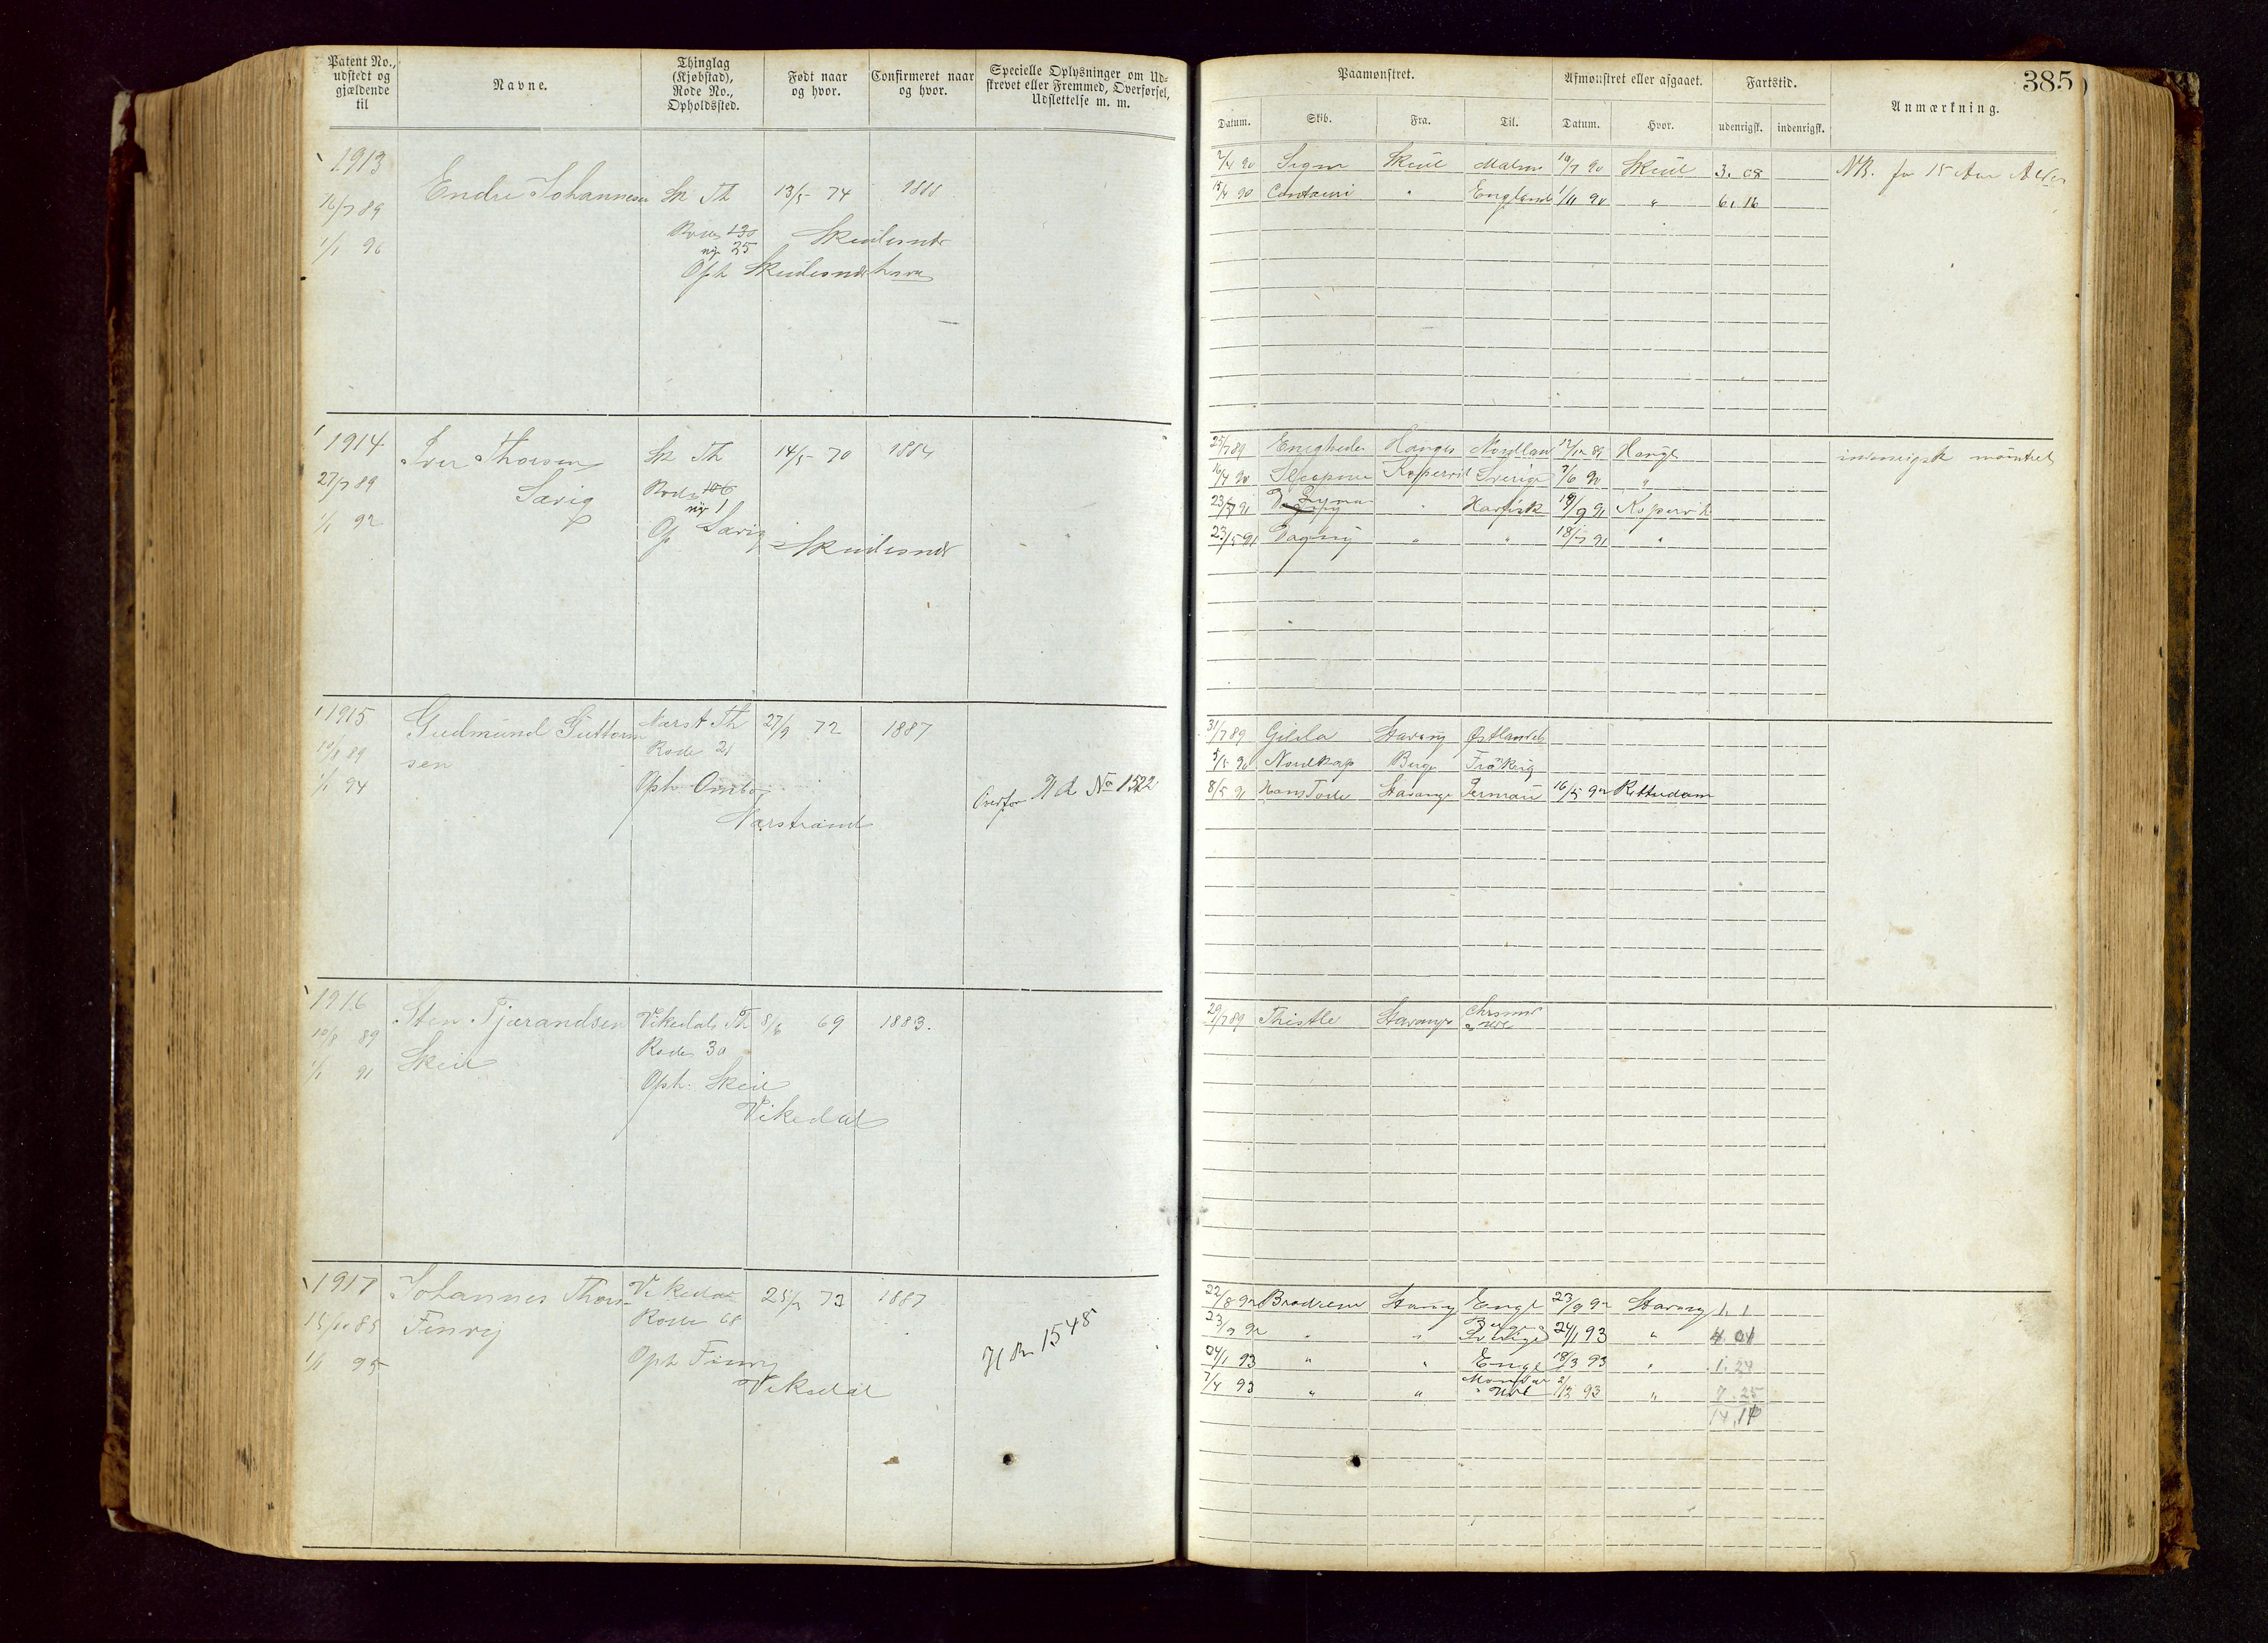 Patent No., udstedt og gjældende til
Navne.
Thinglag (Kjøbstad), Rode No., Opholdssted.
Født naar og hvor.
Confirmeret naar og hvor.
Specielle Oplysninger om Udskrevet eller Fremmed, Overførsel, Udslettelse m. m.
1913
Endre Johannesen Sk Th 13/5 74 1888
16/7 89
Rode 130 Skudesnæs
ny 25
1/1 96
Oph Skudesnæshavn
1914 Iver Thorsen Sk Th 14/5 70 1884
27/7 89 Sævig Rode 106
ny 1
1/1 92 Op Sævig Skudesnæs
1915 Gudmund Guttorm Narst Th 27/9 72 1887
10/8 89 sen Rode 21
1/1 94 Oph Ombo
Overfør H d No 1522
Narstrand
1916 Sten Tjerandsen Vikedals Th 8/6 69 1883.
10/8 89 Skeie Rode 30
1/1 91 Oph. Skeie
Vikedal
1917 Johannes Thors Vikedal 25/2 73 1887
Rode 68
1/1 95 Oph
Vikedal
1548
385
Paamønstret.
Afmønstret eller afgaaet.
Fartstid.
Anmærkning.
Datum. Skib. Fra. Til. Datum. Hvor. udenrigsk. indenrigsk.
7/4 90 Signe Skud Malmø 10/7 90 Skud 3. 08 NB. før 15 Aar
15/4 90 Centauri " England 1/11 90 " 6, 16
25/7 89 Enigheden Hauges Nordland 12/12 89 Hauge indenrigsk mønstret
16/4 90 Kopervik Sverig 7/6 90 "
23/7 91 " Havfisk 19/9 91 Kopervik
23/5 91 Dagny " " 18/7 91 "
31/7 89 Gilda Stavang Østlandet
5/5 90 Nordkap Berge
8/5 91 Hans Tode Stavange 16/5 92 Rotterdam
29/7 89 Thistle Stavange
22/8 92 Brødrene Stavang Engl 23/9 92 Stavang 1, 1
23/9 92 " " Sverige 24/1 93 " 4 01
24/1 93 " " Engl 18/3 93 " 1. 24
7/4 93 " " 2/12 93 " 7. 25